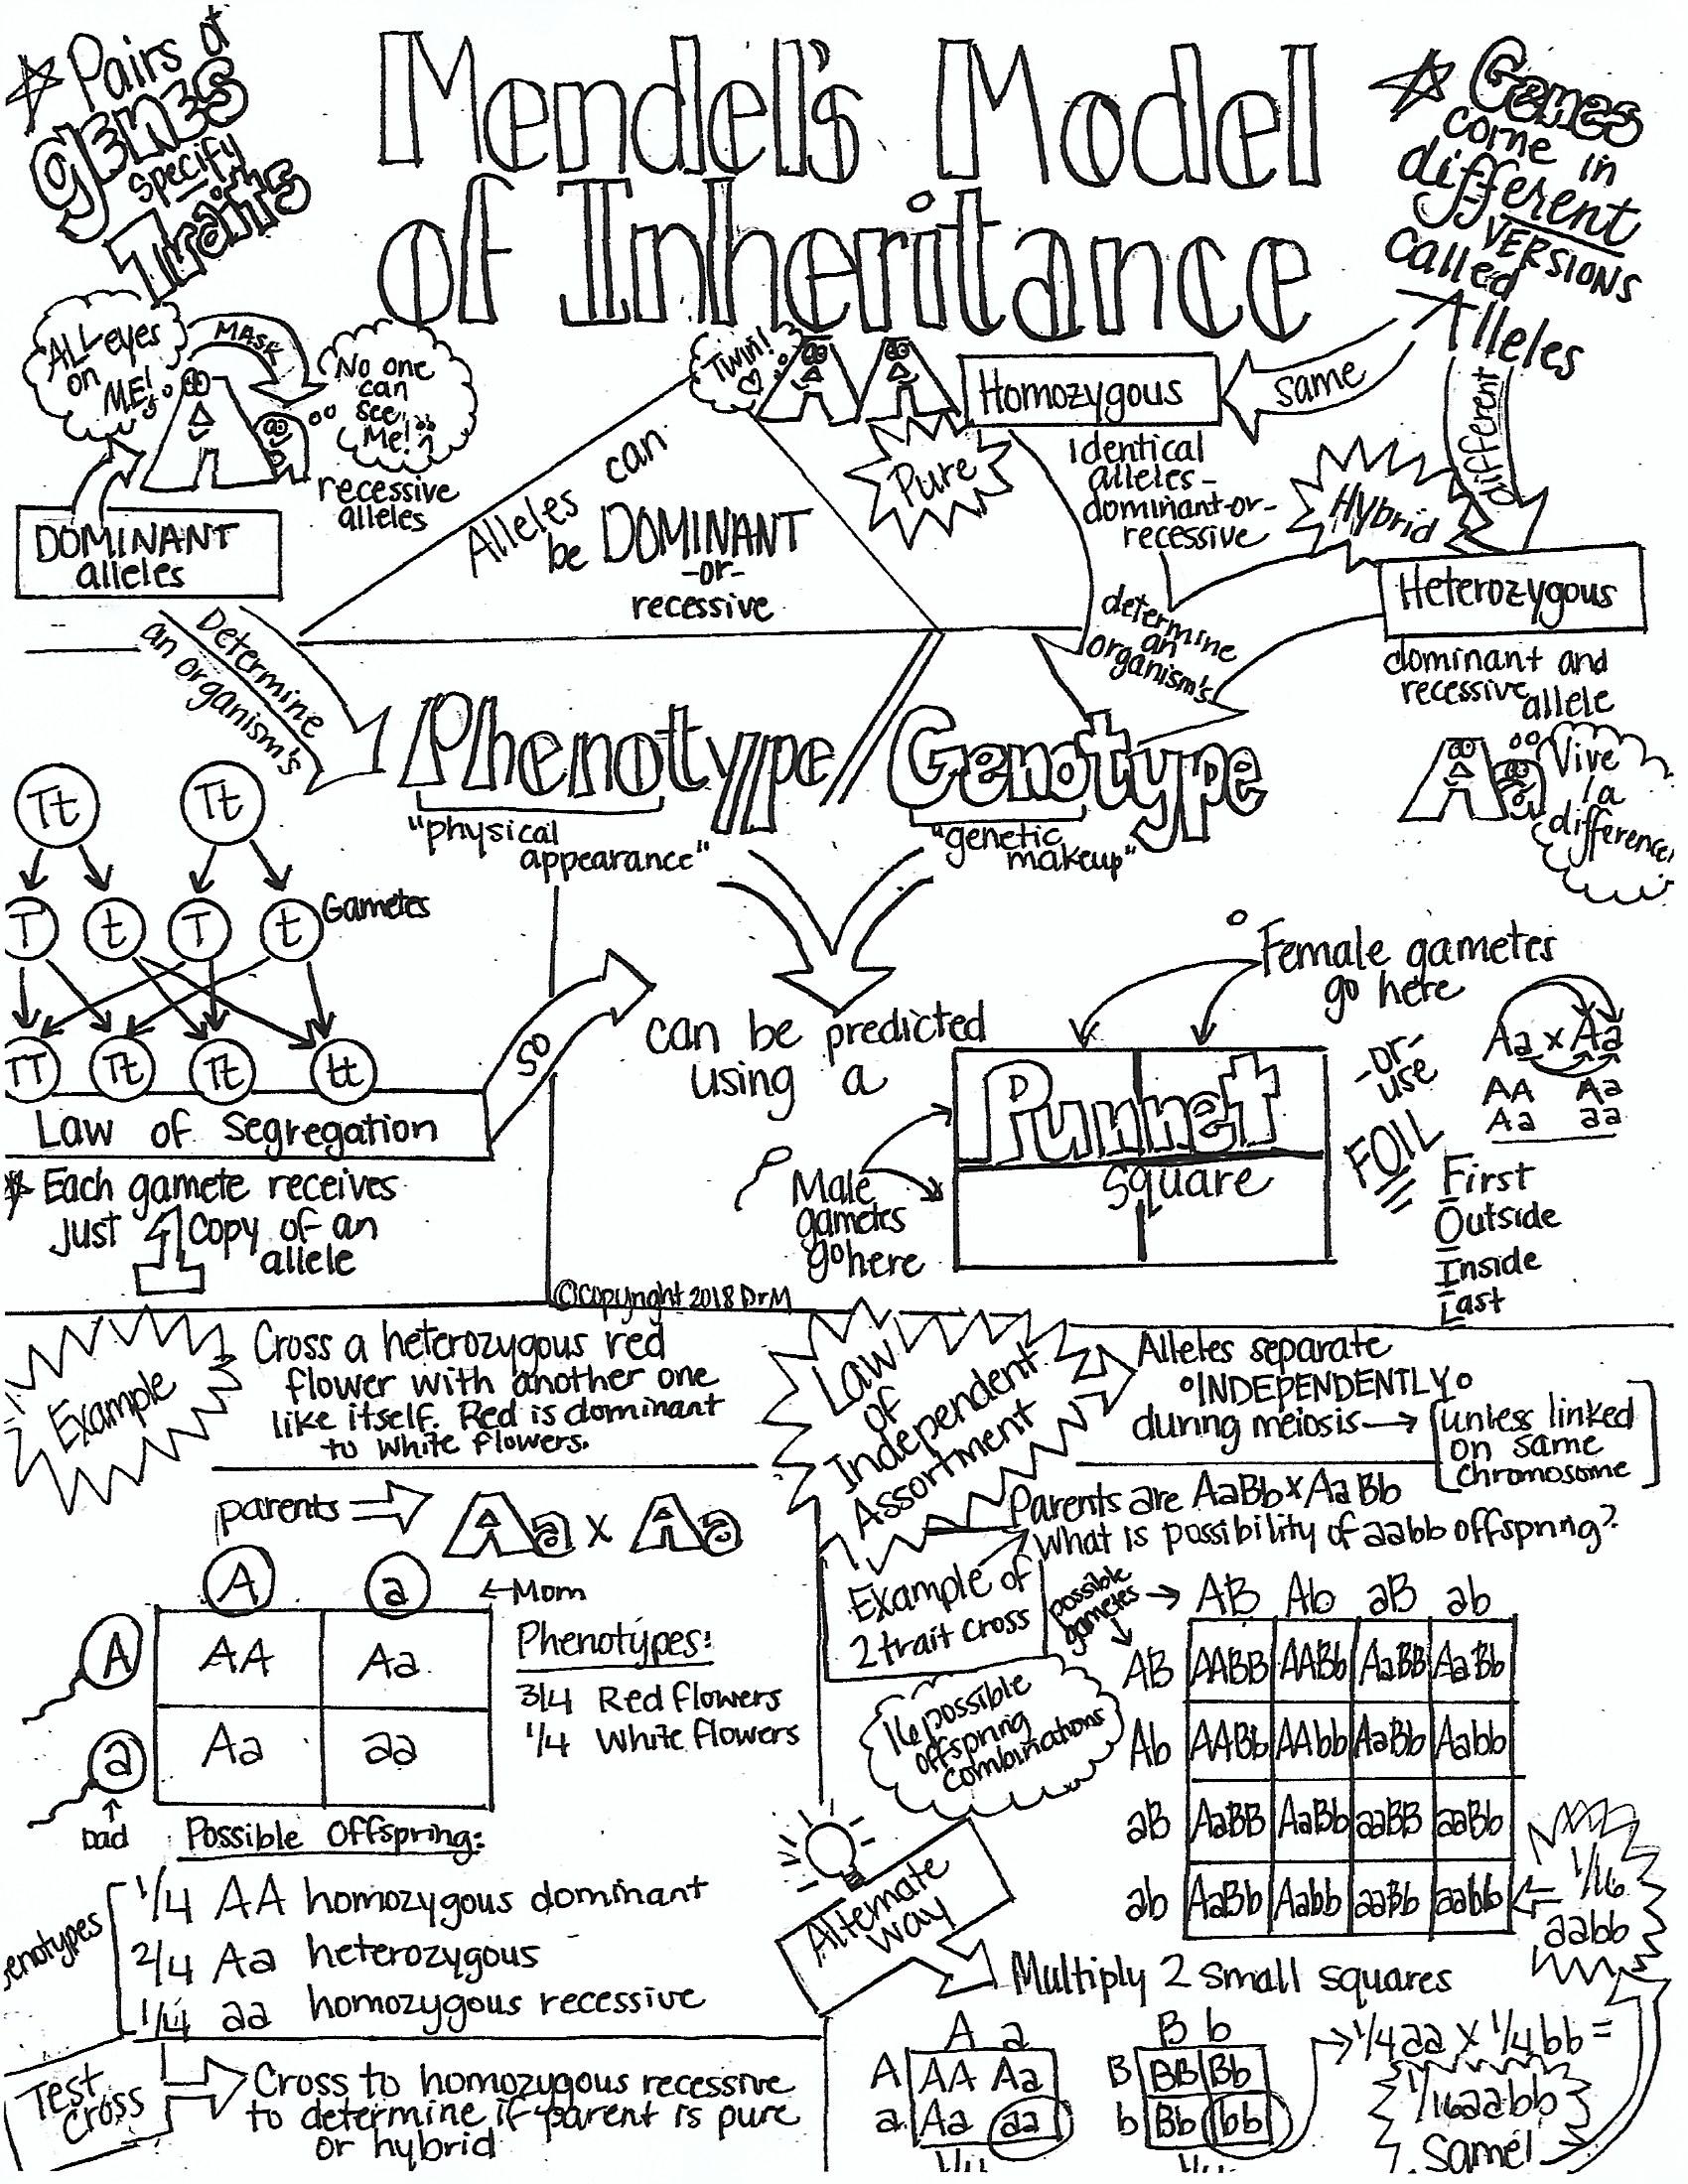 Pairs of
genes
specify
Traits
Mendel's Model
of Inheritance
Genes
come in
different
VERSIONS
called
Alleles
ALL eyes
on
ME!
MASK
No one
can
see
Me!
recessive
alleles
DOMINANT
alleles
Alleles can
be DOMINANT
-or-
recessive
Twin!
AA
Pure
Homozygous
same
different
Identical
alleles-
dominant-or-
recessive
Hybrid
Heterozygous
dominant and
recessive allele
Aa
Vive
la
difference!
Determine
an organism's
determine
an
organism's
Phenotype//Genotype
"physical
appearance"
"genetic
makeup"
Tt Tt
T t T t Gametes
TT Tt Tt tt
Law of Segregation
Each gamete receives
just 1 copy of an
allele
so
can be predicted
using a
Female gametes
go here
Male
gametes
go here
Punnet
square
-or-
use
FOIL
Aa x Aa
AA Aa
Aa aa
First
Outside
Inside
Last
©Copyright 2018 DrM
Example
Cross a heterozygous red
flower with another one
like itself. Red is dominant
to white flowers.
parents
Aa x Aa
A a ←Mom
A AA Aa
a Aa aa
Dad
Phenotypes:
3/4 Red flowers
1/4 White flowers
Possible Offspring:
enotypes
1/4 AA homozygous dominant
2/4 Aa heterozygous
1/4 aa homozygous recessive
Test
Cross
Cross to homozygous recessive
to determine if parent is pure
or hybrid
Law
of
Independent
Assortment
Alleles separate
°INDEPENDENTLY°
during meiosis→
[unless linked
on same
chromosome]
Parents are AaBb x AaBb
What is possibility of aabb offspring?
Example of
2 trait cross
possible
gametes
16 possible
offspring
combinations
AB Ab aB ab
AB AABB AABb AaBB AaBb
Ab AABb AAbb AaBb Aabb
aB AaBB AaBb aaBB aaBb
ab AaBb Aabb aaBb aabb
1/16
aabb
Alternate
way
Multiply 2 small squares
A a
A AA Aa
a Aa aa
1/4
B b
B BB Bb
b Bb bb
1/4
1/4 aa x 1/4 bb =
1/16 aabb
same!